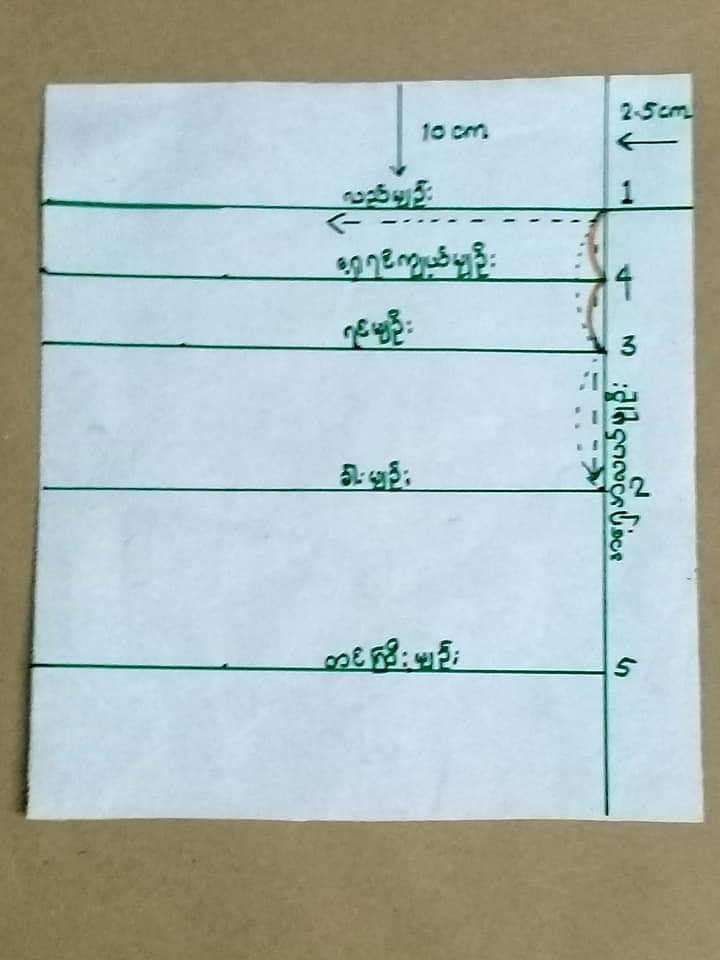 2.5cm
10 cm
လည်မျဉ်း
1
ရှေ့ရင်ကျယ်မျဉ်း
4
ရင်မျဉ်း
3
ခါးမျဉ်း
2
တင်ကြီးမျဉ်း
5